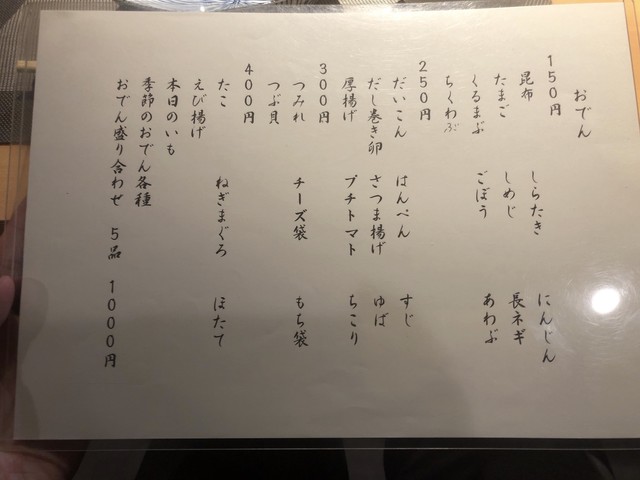 おでん
150円
昆布 しらたき にんじん
たまご しめじ 長ネギ
くるまぶ ごぼう あわぶ
ちくわぶ
250円
だいこん はんぺん すじ
だし巻き卵 さつま揚げ ゆば
厚揚げ プチトマト ちこり
300円
つみれ チーズ袋 もち袋
つぶ貝
400円
たこ ねぎまぐろ ほたて
えび揚げ
本日のいも
季節のおでん各種
おでん盛り合わせ 5品 1000円